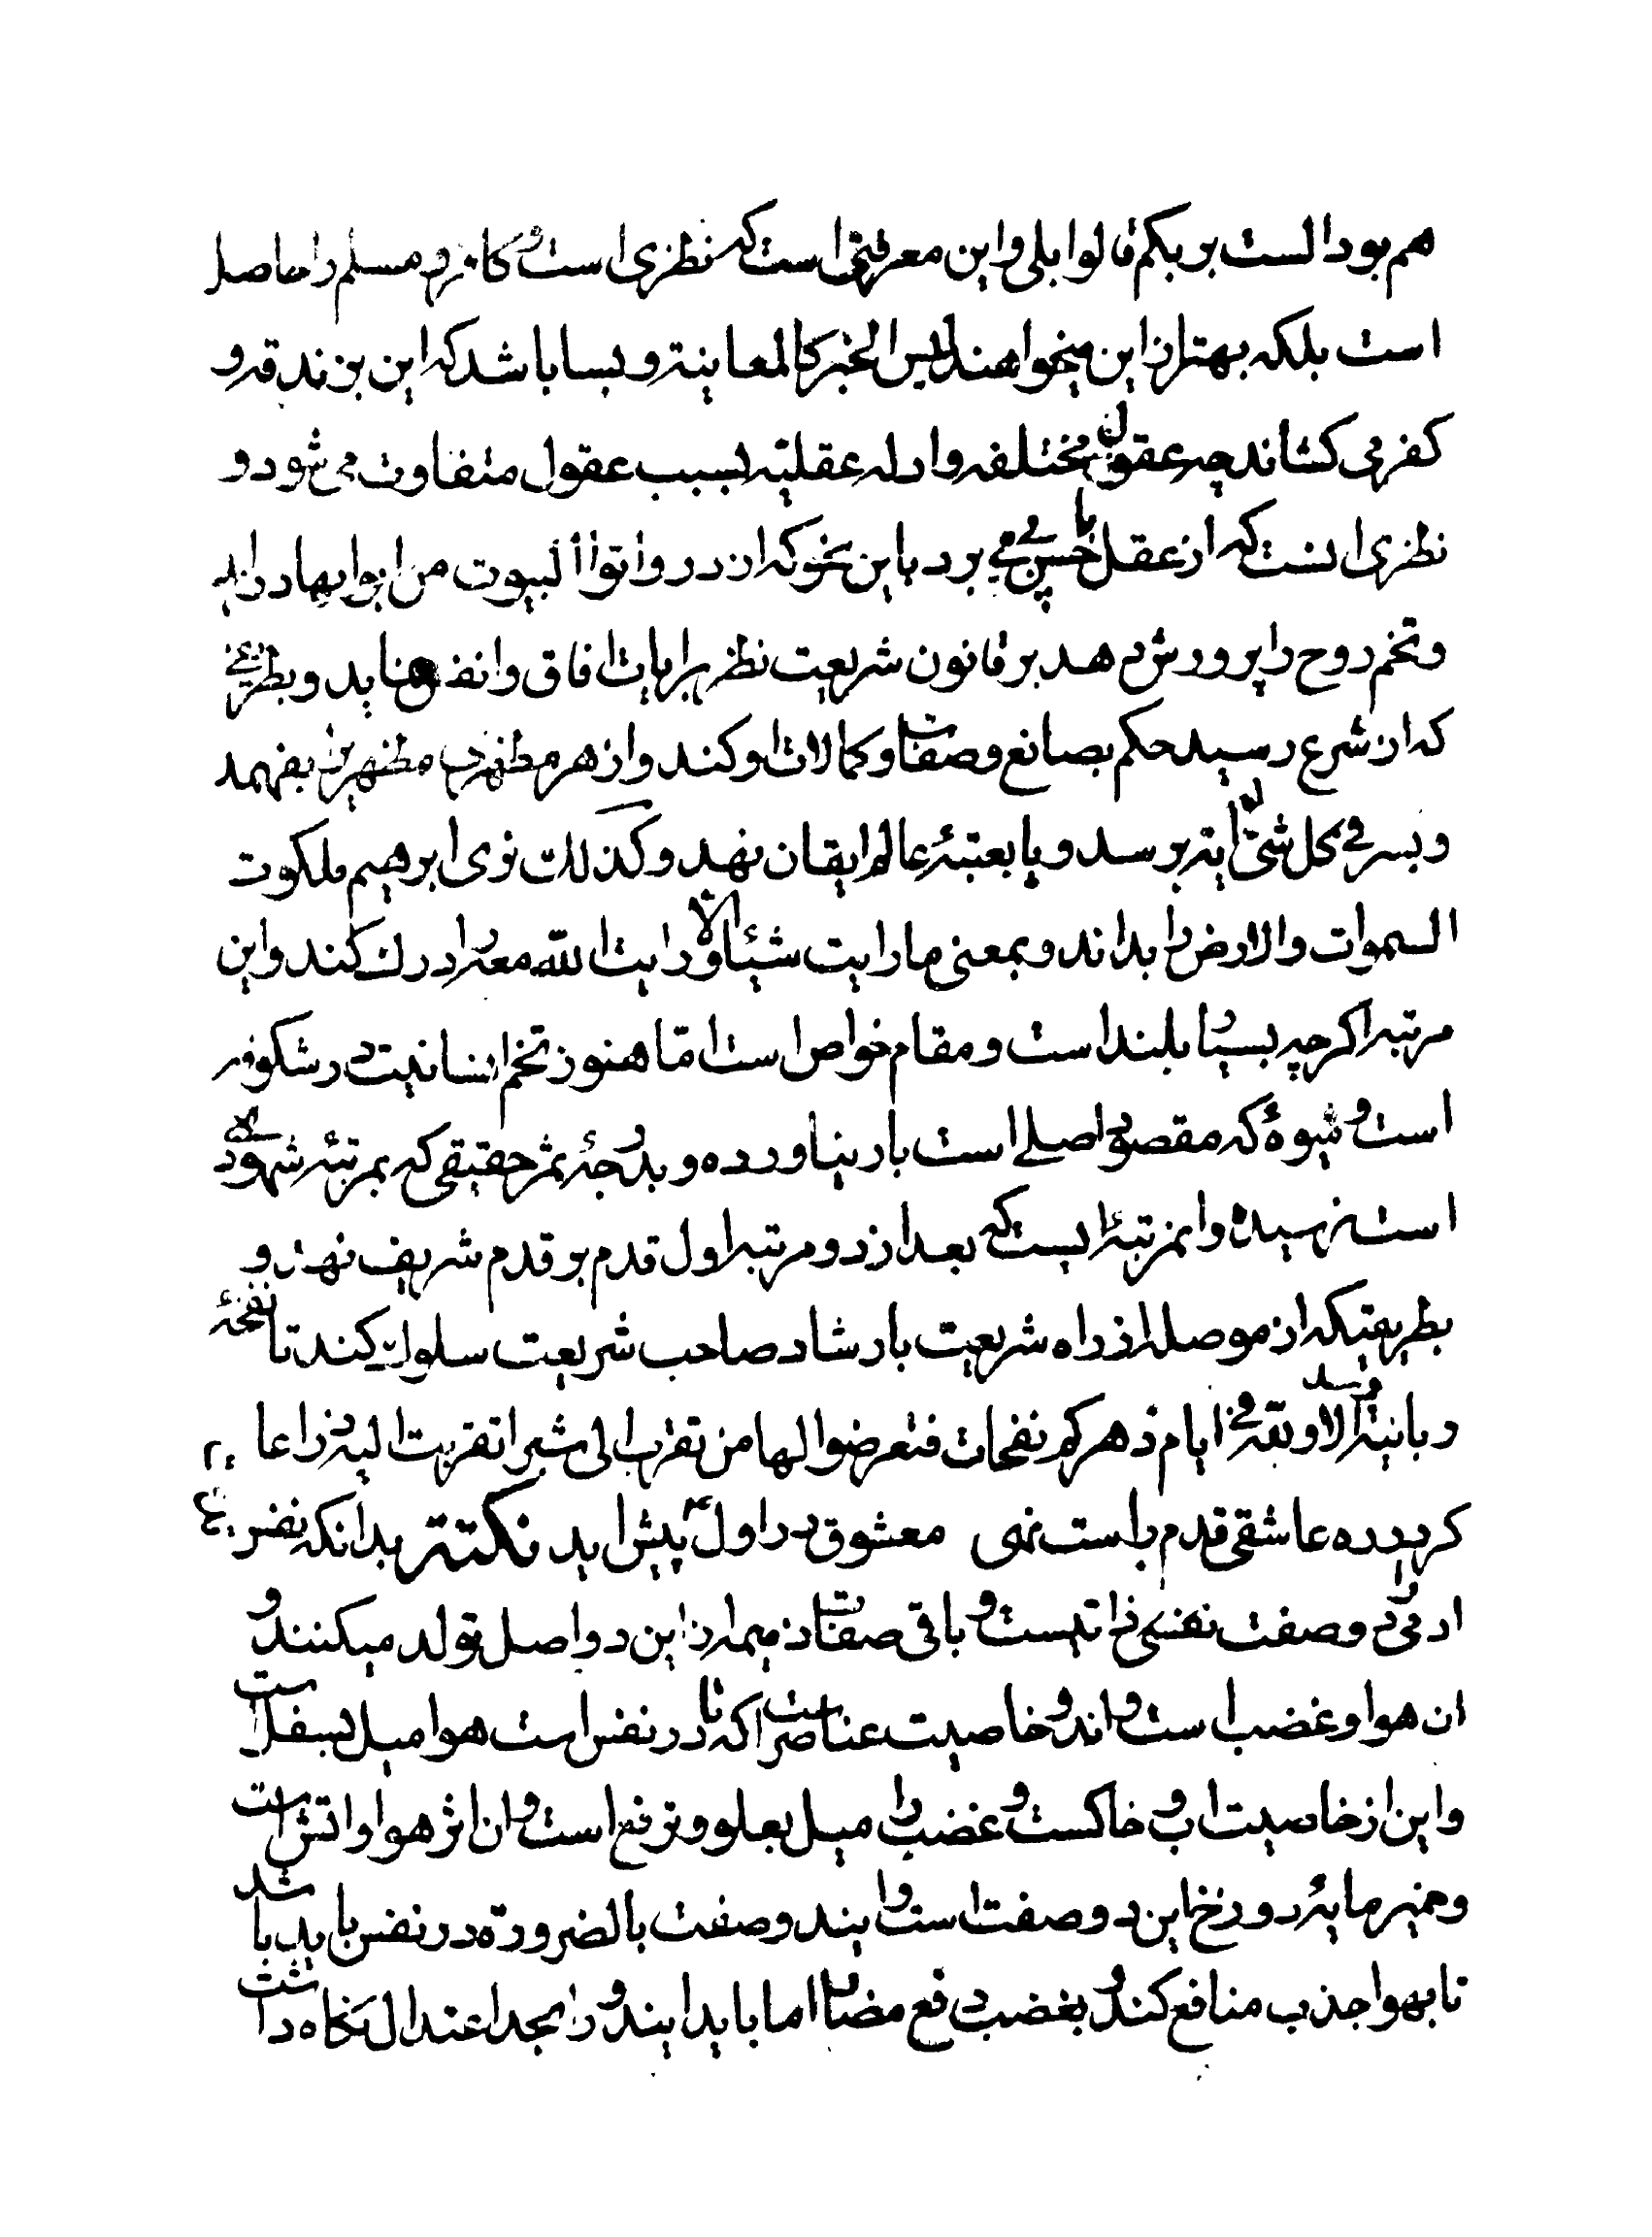 هم بود الست بربکم قالوا بلی و این معرفتی است که نظری است و کافر و مسلم را حاصل
است بلکه بهتر از این میخواهند لیس الخبر کالمعاینة و بسا باشد که این بزندقه و
کفر می کشاند چه عقول مختلفه و ادله عقلیّه بسبب عقول متفاوت می شود و
نظری انست که از عقل با حس پی می برد باین نحو که از در واتوا البیوت من ابوابها در اید
و تخم روح را پرورش دهد بر قانون شریعت نظر برایات افاق و انفس نماید و بطریقی
که از شرع رسید حکم بصانع و صفات و کمالات او کند و از هر مظهری مظهریرا بفهمد
و بسر فی کل شئ له ایة برسد و پا بعتبهٔ عالم ایقان نهد و کذلک نری ابرهیم ملکوت
السموات والارض را بداند و بمعنی ما رایت شیئا الا و رایت الله معه را درک کند و این
مرتبه اگرچه بسیار بلند است و مقام خواص است امّا هنوز تخم انسانیت در شکوفه
است و میوهٔ که مقصود اصلی است بار نیاورده و بدرجهٔ ثمر حقیقی که بمرتبهٔ شهودی
است نرسیده و انمرتبهٔ ایست که بعد از دو مرتبه اول قدم بر قدم شریف نهد و
بطریقتیکه ان موصله از راه شریعت بارشاد صاحب شریعت سلوک کند تا نفحهٔ
ربانیة رسد الا و لله فی ایام دهرکم نفحات فتعرضوا لها من تقرب الی شبرا تقربت الیه ذراعا
کر در ره عاشقی قدم راست نهی معشوق در اول پیش اید نکتة بدانکه نفس
ادمی را دو صفت نفسی ذاتیست و باقی صفات ذمیمه از این دو اصل تولد میکنند و
ان هوا و غضب است و اندو خاصیت عناصر است که تا در نفس است هوا میل بسفل است
و این از خاصیت اب و خاکست و غضب را میل بعلو و ترفع است و ان اثر هوا و اتش است
و خمیر مایهٔ دوزخ این دو صفت است و ایندو صفت بالضرورة در نفس باید باشد
تا بهوا جذب منافع کند و بغضب دفع مضار اما باید ایندو را بحد اعتدال نگاه داشت